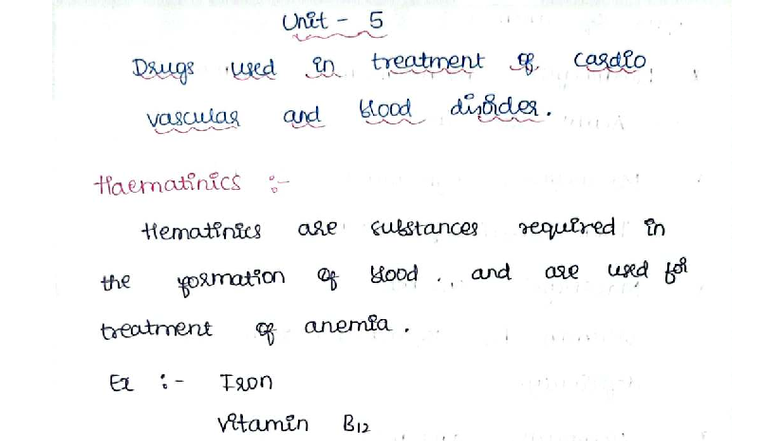 Unit - 5
Drugs used in treatment of cardio
vascular and blood disorder.
Haematinics :-
Hematinics are substances required in
the formation of blood. and are used for
treatment of anemia.
Ex :- Iron
Vitamin B12